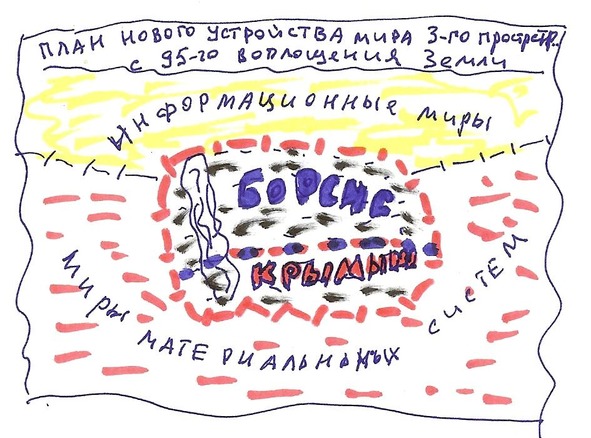 ПЛАН НОВОГО УСТРОЙСТВА МИРА 3-ГО ПРОСТР..
С 95-ГО ВОПЛОЩЕНИЯ ЗЕМЛИ
ИНФОРМАЦИОННЫЕ МИРЫ
БОРСИС
КРЫМЫШ
МИРЫ МАТЕРИАЛЬНЫХ СИСТЕМ